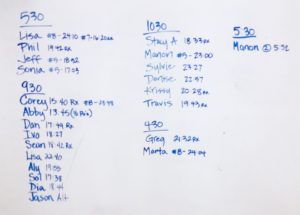 530
Lisa #8-24:10 #7-14:20 RX
Phil 19:42 RX
Jeff #5-18:52
Sonia #5-17:53
930
Corey 15:40 RX #8-23:48
Abby 13:45
Dan 17:49 RX
Iva 18:27
Sean 18:42 RX
Lisa 22:40
Aly 19:55
Sol 17:38
Dia 18:44
Jason
1030
Stacy A 18:33 RX
Manon #5-23:00
Sylvie 23:27
Denise 22:57
Krissy 20:28 RX
Travis 19:43 RX
430
Greg 24:32 RX
Marta #8-24:04
530
Manon 5:52